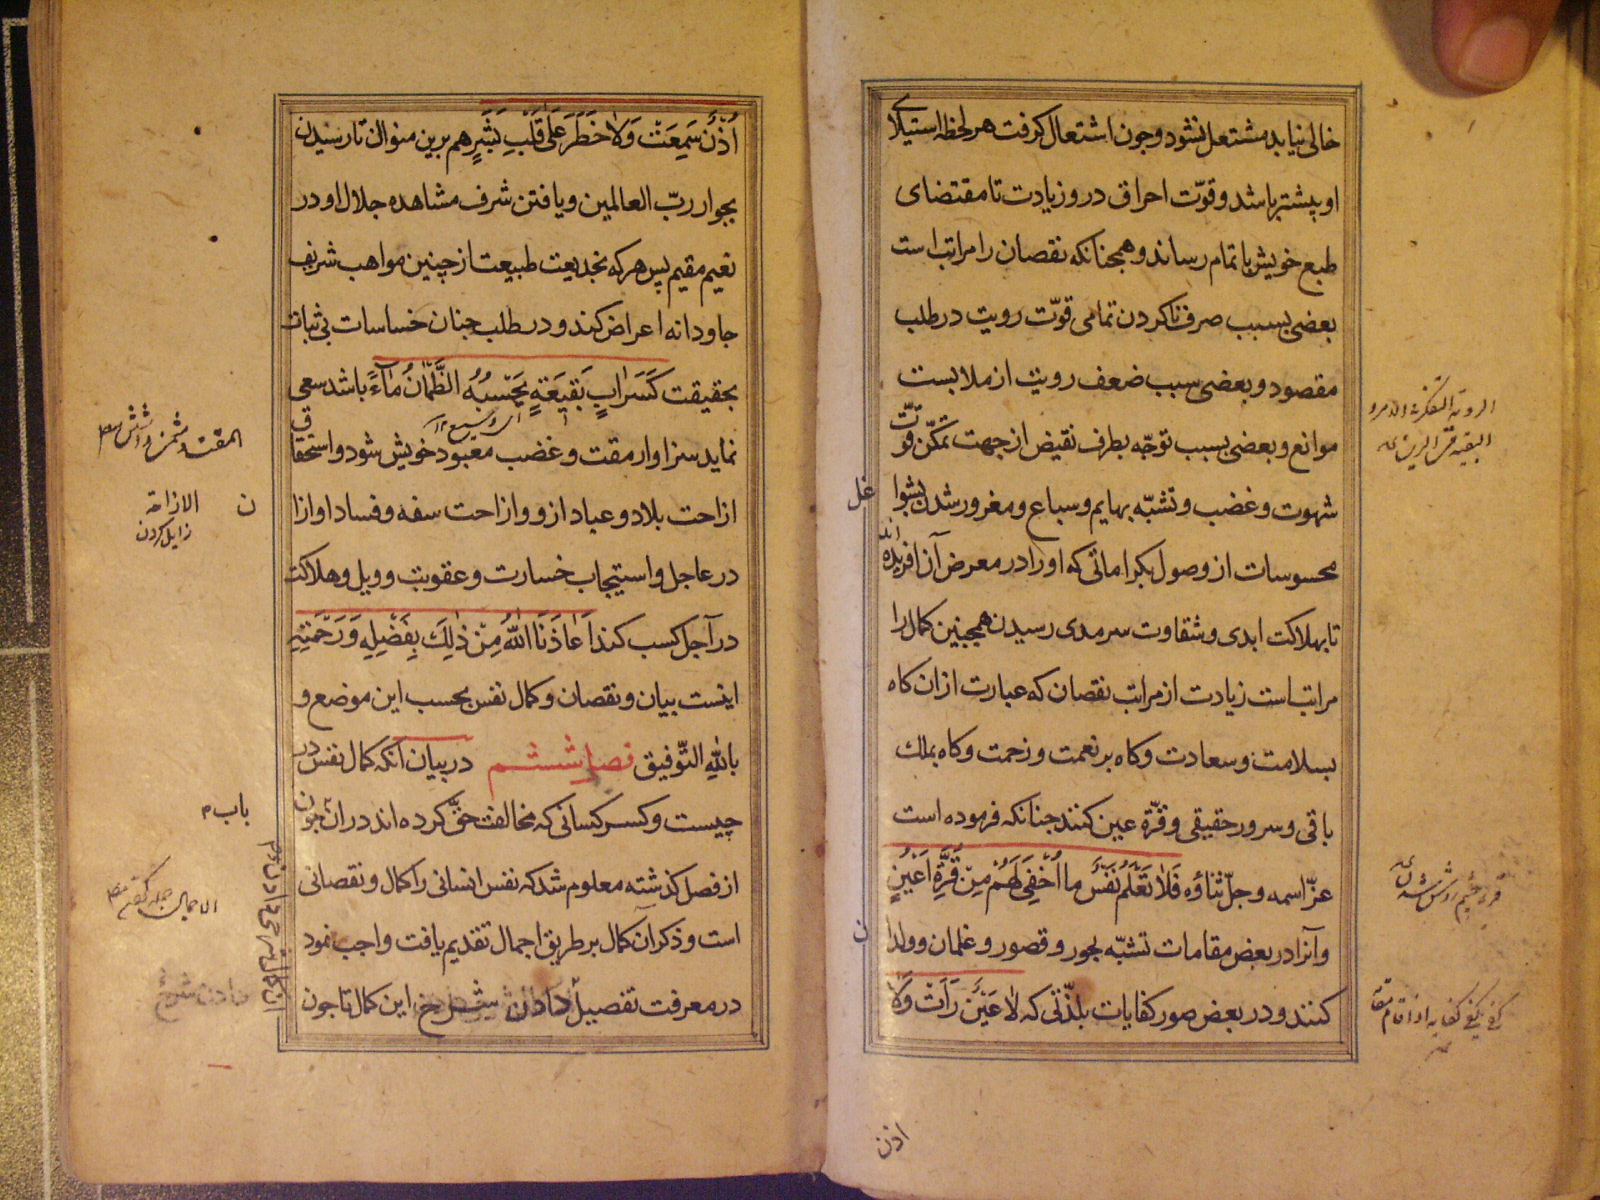 خالی نیاید مشتعل نشود و چون اشتعال گرفت هر لحظه استیلای
او بیشتر باشد و قوّت احراق در و زیادت تا مقتضای
طبع خویش باتمام رساند و همچنانکه نقصان را مراتب است
بعضی بسبب صرف ناکردن تمامی قوّت رویت در طلب
مقصود و بعضی بسبب ضعف رویت از ملابست
موانع و بعضی بسبب توجّه بطرف نقیض از جهت تمکّن قوّت
شهوت و غضب و تشبّه بهایم و سباع و مغرور شدن بشواغل
محسوسات از وصول بکراماتی که او را در معرض آن آفریده اند
تا بهلاکت ابدی و شقاوت سرمدی رسیدن همچنین کمال را
مراتب است زیادت از مراتب نقصان که عبارت از ان کاه
بسلامت و سعادت و کاه بر نعمت و رحمت و کاه بملک
باقی و سرور حقیقی و قرّة عین کنند چنانکه فرموده است
عزّ اسمه و جلّ ثناؤه فَلَا تَعْلَمُ نَفْسٌ ما اُخْفِیَ لَهُمْ مِنْ قُرَّةِ اَعْیُنٍ
و آنرا در بعض مقامات تشبّه بحور و قصور و غلمان و ولدان
کنند و در بعض صور کفایات بلذّتی که لا عَیْنٌ رَاَتْ وَلا
اذن
اُذُنٌ سَمِعَتْ وَلا خَطَرَ عَلی قَلْبِ بَشَرٍ هم برین منوال تا رسیدن
بجوار ربّ العالمین و یافتن شرف مشاهده جلال او در
نعیم مقیم پس هر که بخدیعت طبیعت از چنین مواهب شریف
جاودانه اعراض کند و در طلب چنان خساسات بی ثبات
بحقیقت کَسَرابٍ بِقیعَةٍ یَحْسَبُهُ الظَّمْاٰنُ مٰاءً باشد سعی
نماید سزاوار مقت و غضب معبود خویش شود و استحقاق
ازاحت بلاد و عباد ازو و ازاحت سفه و فساد او ازان
در عاجل و استیجاب خسارت و عقوبت و ویل و هلاکت
در آجل کسب کند اَعَاذَنَا اللهُ مِنْ ذٰلِکَ بِفَضْلِهِ وَ رَحْمَتِهِ
اینست بیان و نقصان و کمال نفس بحسب این موضع و
بالله التّوفیق فصل ششم در بیان آنکه کمال نفس در
چیست و کسر کسانی که مخالفت حقّ کرده اند در ان چون
از فصل گذشته معلوم شد که نفس انسانی را کمال و نقصانی
است و ذکر آن کمال بر طریق اجمال تقدیم یافت واجب نمود
در معرفت تفصیل دادن شرح این کمال تا چون
الازاحة
زایل کردن
باب م